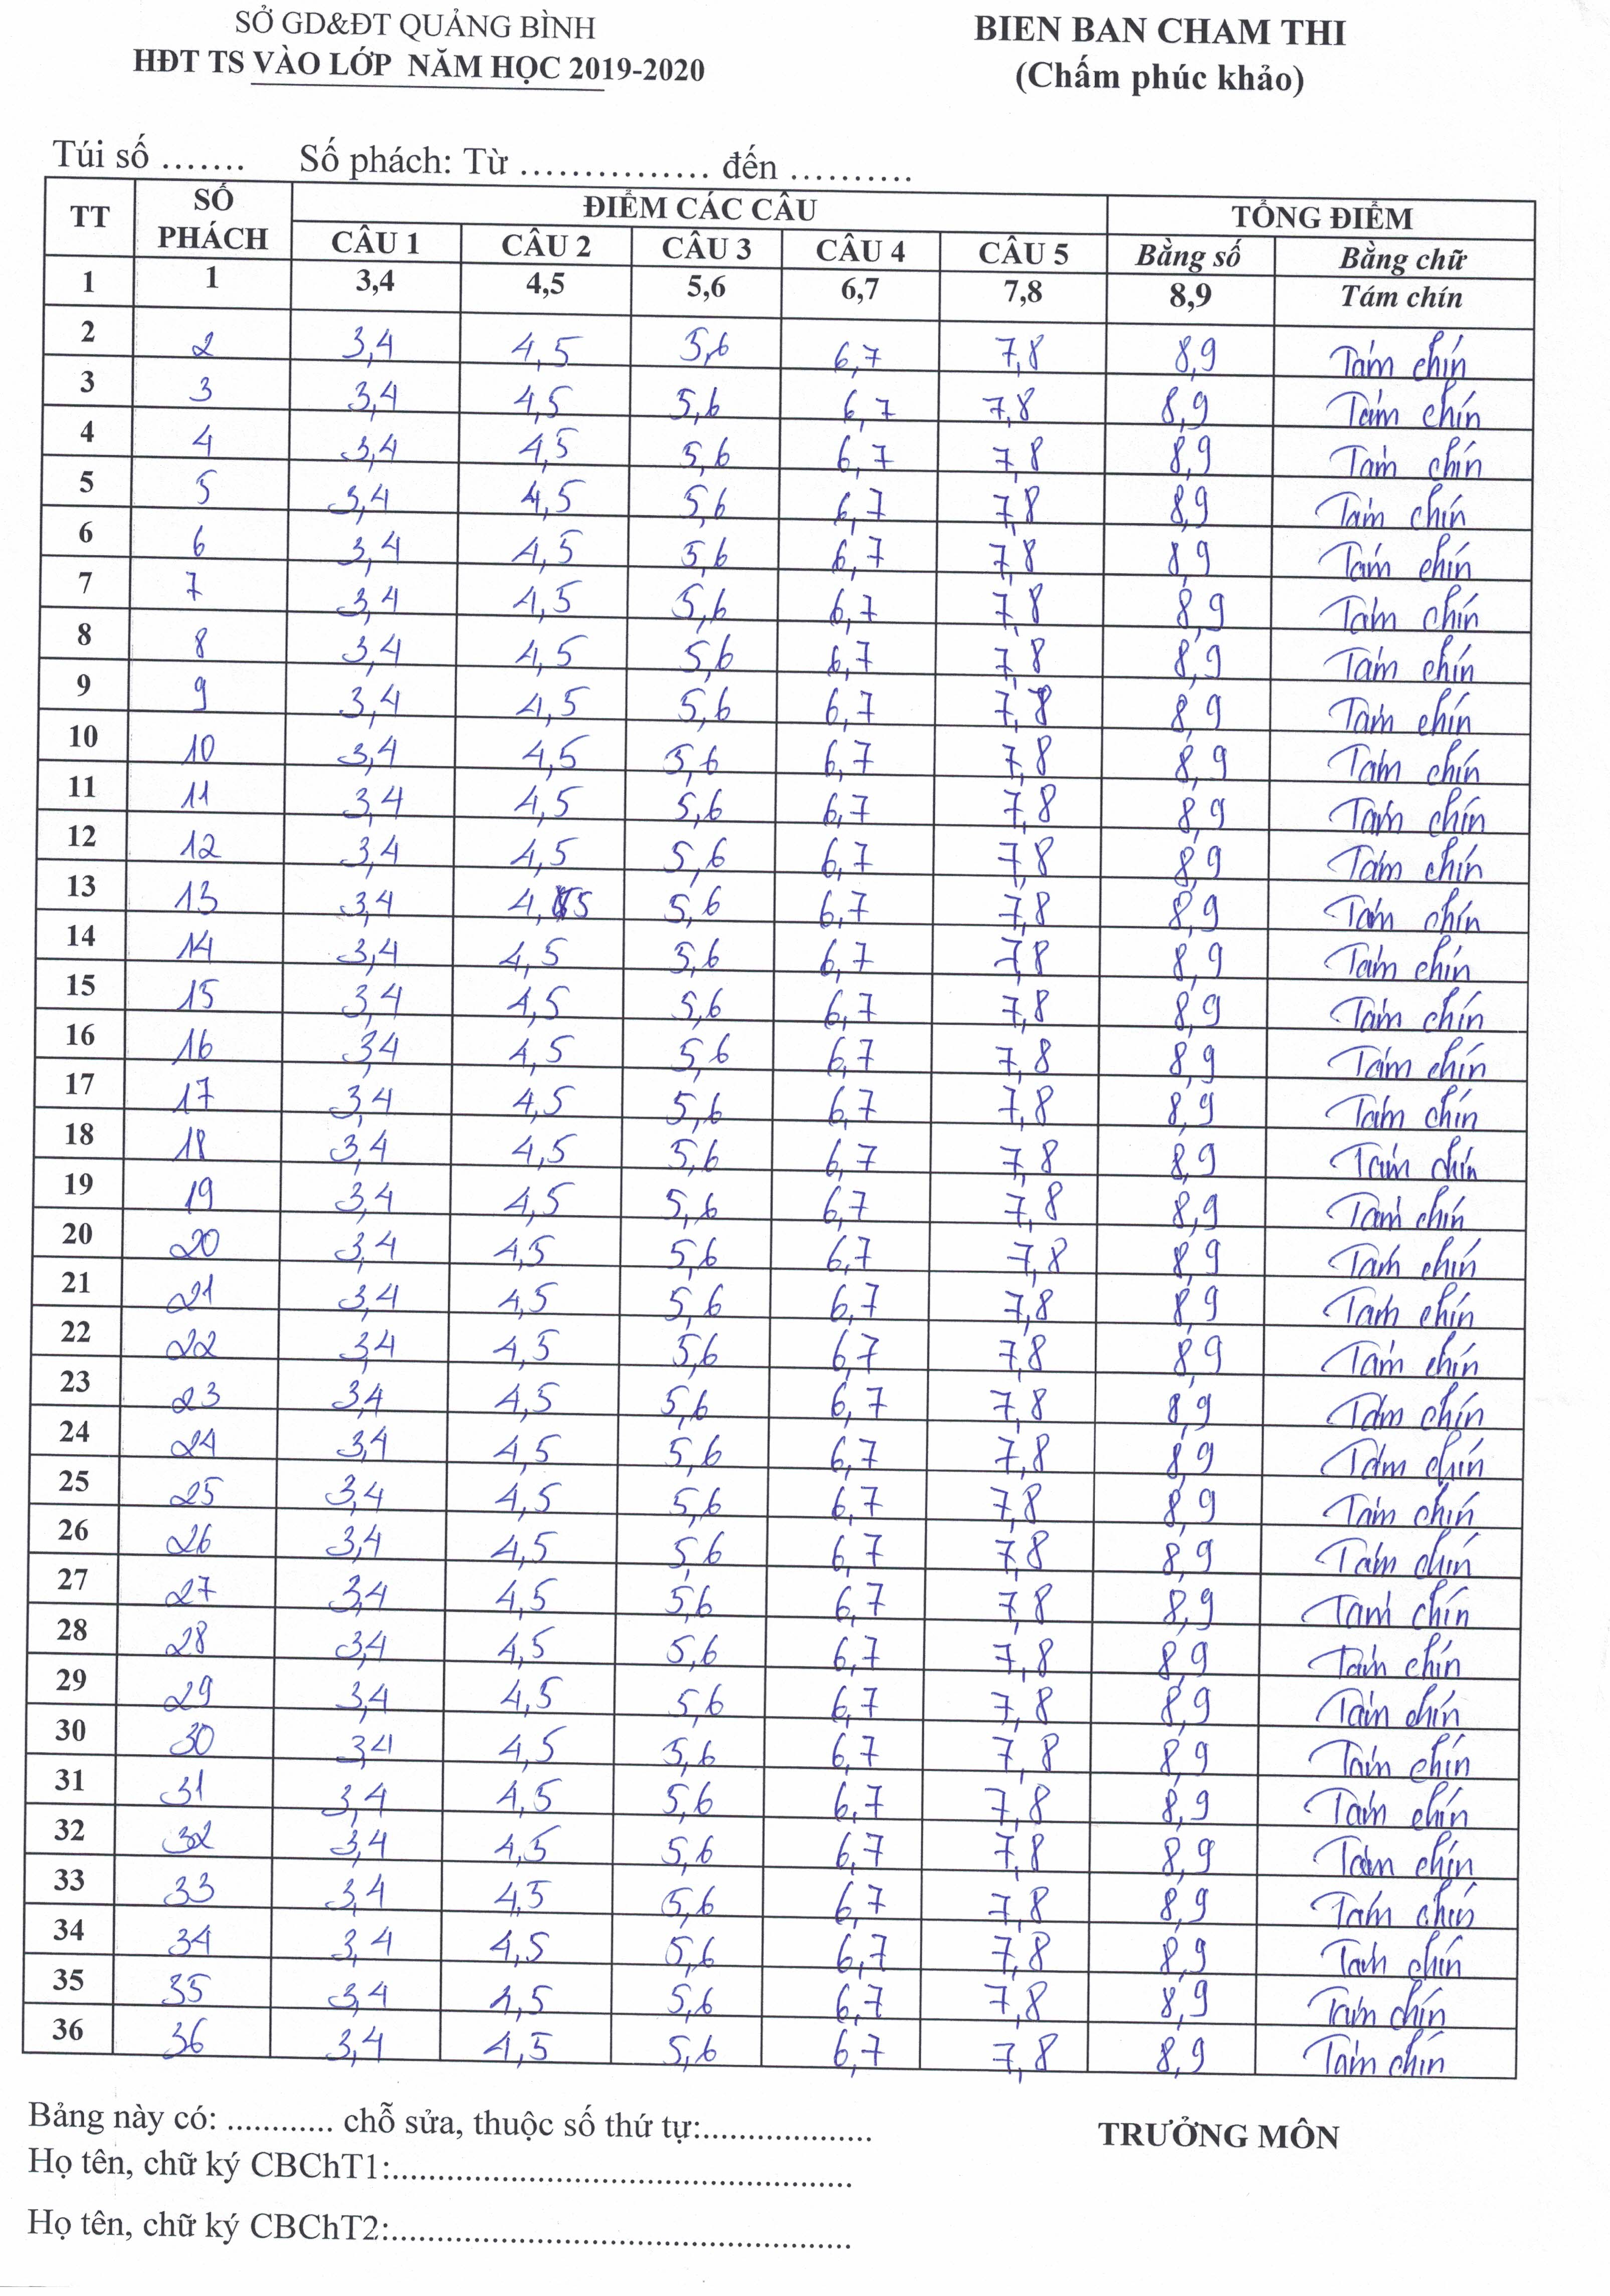 SỞ GD&ĐT QUẢNG BÌNH
HĐT TS VÀO LỚP NĂM HỌC 2019-2020
BIEN BAN CHAM THI
(Chấm phúc khảo)
Túi số ....... Số phách: Từ ............... đến ..........
TT SỐ PHÁCH ĐIỂM CÁC CÂU TỔNG ĐIỂM
CÂU 1 CÂU 2 CÂU 3 CÂU 4 CÂU 5 Bằng số Bằng chữ
1 1 3,4 4,5 5,6 6,7 7,8 8,9 Tám chín
2 2 3,4 4,5 5,6 6,7 7,8 8,9 Tám chín
3 3 3,4 4,5 5,6 6,7 7,8 8,9 Tám chín
4 4 3,4 4,5 5,6 6,7 7,8 8,9 Tám chín
5 5 3,4 4,5 5,6 6,7 7,8 8,9 Tám chín
6 6 3,4 4,5 5,6 6,7 7,8 8,9 Tám chín
7 7 3,4 4,5 5,6 6,7 7,8 8,9 Tám chín
8 8 3,4 4,5 5,6 6,7 7,8 8,9 Tám chín
9 9 3,4 4,5 5,6 6,7 7,8 8,9 Tám chín
10 10 3,4 4,5 5,6 6,7 7,8 8,9 Tám chín
11 11 3,4 4,5 5,6 6,7 7,8 8,9 Tám chín
12 12 3,4 4,5 5,6 6,7 7,8 8,9 Tám chín
13 13 3,4 4,5 5,6 6,7 7,8 8,9 Tám chín
14 14 3,4 4,5 5,6 6,7 7,8 8,9 Tám chín
15 15 3,4 4,5 5,6 6,7 7,8 8,9 Tám chín
16 16 3,4 4,5 5,6 6,7 7,8 8,9 Tám chín
17 17 3,4 4,5 5,6 6,7 7,8 8,9 Tám chín
18 18 3,4 4,5 5,6 6,7 7,8 8,9 Tám chín
19 19 3,4 4,5 5,6 6,7 7,8 8,9 Tám chín
20 20 3,4 4,5 5,6 6,7 7,8 8,9 Tám chín
21 21 3,4 4,5 5,6 6,7 7,8 8,9 Tám chín
22 22 3,4 4,5 5,6 6,7 7,8 8,9 Tám chín
23 23 3,4 4,5 5,6 6,7 7,8 8,9 Tám chín
24 24 3,4 4,5 5,6 6,7 7,8 8,9 Tám chín
25 25 3,4 4,5 5,6 6,7 7,8 8,9 Tám chín
26 26 3,4 4,5 5,6 6,7 7,8 8,9 Tám chín
27 27 3,4 4,5 5,6 6,7 7,8 8,9 Tám chín
28 28 3,4 4,5 5,6 6,7 7,8 8,9 Tám chín
29 29 3,4 4,5 5,6 6,7 7,8 8,9 Tám chín
30 30 3,4 4,5 5,6 6,7 7,8 8,9 Tám chín
31 31 3,4 4,5 5,6 6,7 7,8 8,9 Tám chín
32 32 3,4 4,5 5,6 6,7 7,8 8,9 Tám chín
33 33 3,4 4,5 5,6 6,7 7,8 8,9 Tám chín
34 34 3,4 4,5 5,6 6,7 7,8 8,9 Tám chín
35 35 3,4 4,5 5,6 6,7 7,8 8,9 Tám chín
36 36 3,4 4,5 5,6 6,7 7,8 8,9 Tám chín
Bảng này có: ............ chỗ sửa, thuộc số thứ tự:...................
TRƯỞNG MÔN
Họ tên, chữ ký CBChT1:..................................................
Họ tên, chữ ký CBChT2:..................................................